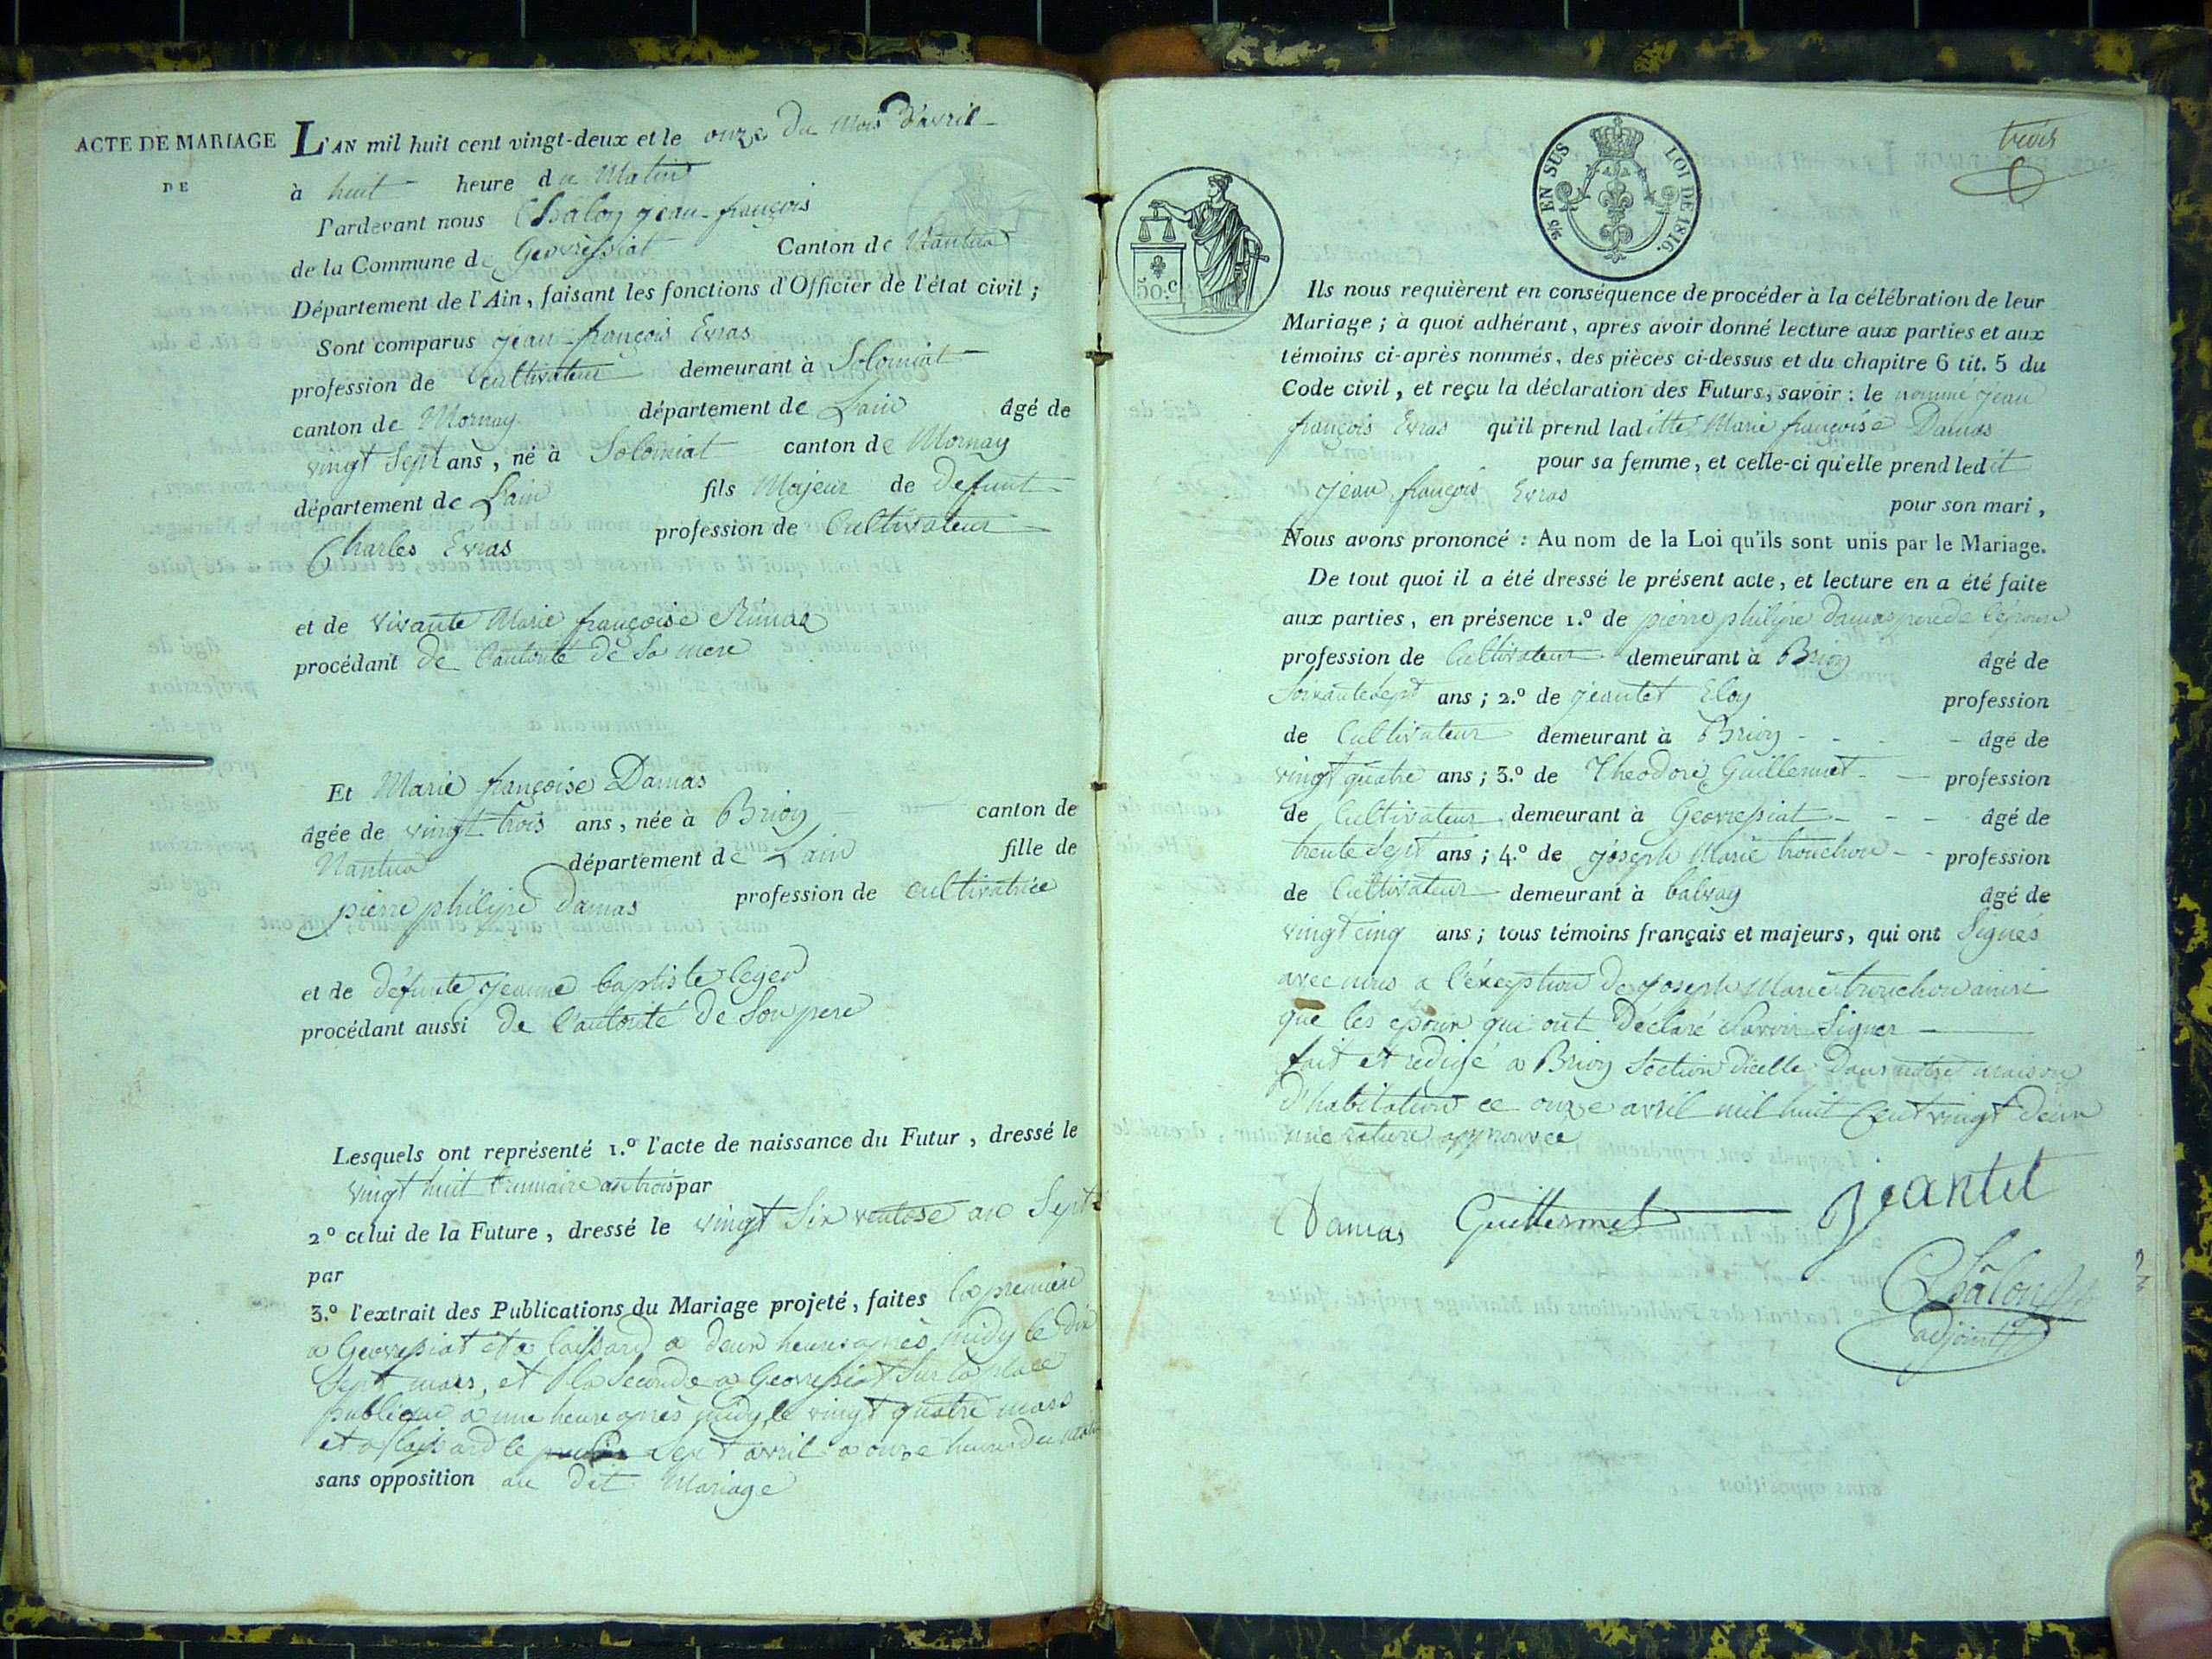 ACTE DE MARIAGE
DE
L'AN mil huit cent vingt-deux et le onze du Mois d'avril
à huit heure du Matin
Pardevant nous Chaloy jean-françois
de la Commune de Geovressiat Canton de Nantua
Département de l'Ain, faisant les fonctions d'Officier de l'état civil;
Sont comparus jean-françois Evras
profession de Cultivateur demeurant à Solomiat
canton de Mornay département de Lain âgé de
vingt Sept ans, né à Solomiat canton de Mornay
département de Lain fils Majeur de defunt
Charles Evras profession de Cultivateur
et de vivante Marie françoise
procédant de l'autorité de Sa mere
Et Marie françoise Damas
âgée de vingt trois ans, née à Brion canton de
Nantua département de Lain fille de
pierre philipe damas profession de cultivatrice
et de défunte jeanne baptiste leger
procédant aussi de l'autorité de Son pere
Lesquels ont représenté 1.° l'acte de naissance du Futur, dressé le
vingt huit brumaire an trois par
2° celui de la Future, dressé le vingt Six ventose an Sept
par
3.° l'extrait des Publications du Mariage projeté, faites la premiere
a Geovressiat et a a deux heures après midy le dix
Sept mars, et la Seconde a Geovressiat Sur la place
publique a une heure après midy, le vingt quatre mars
et a le Sept avril a onze heure du matin
sans opposition au dit Mariage
trois
50.c
2/10 EN SUS LOI DE 1816.
Ils nous requièrent en conséquence de procéder à la célébration de leur
Mariage; à quoi adhérant, apres avoir donné lecture aux parties et aux
témoins ci-après nommés, des pièces ci-dessus et du chapitre 6 tit. 5 du
Code civil, et reçu la déclaration des Futurs, savoir: le nommé jean
françois Evras qu'il prend laditte Marie françoise Damas
pour sa femme, et celle-ci qu'elle prend ledit
jean françois Evras pour son mari,
Nous avons prononcé: Au nom de la Loi qu'ils sont unis par le Mariage.
De tout quoi il a été dressé le présent acte, et lecture en a été faite
aux parties, en présence 1.° de pierre philipe damas pere de
profession de Cultivateur demeurant à Brion âgé de
Soixante Sept ans; 2.° de jeantet Eloy profession
de Cultivateur demeurant à Brion - - - âgé de
vingt quatre ans; 3.° de Theodore Guillermet - profession
de Cultivateur demeurant à Geovressiat - - - âgé de
trente Sept ans; 4.° de joseph Marie trouchon - - profession
de Cultivateur demeurant à âgé de
vingt cinq ans; tous témoins français et majeurs, qui ont Signés
avec nous a l'exception de joseph Marie trouchon ainsi
que les epoux qui ont déclaré Signer
fait et redigé a Brion Section d'icelle dans notre maison
d'habitation ce onze avril mil huit Cent vingt deux
une rature approuvée
Damas Guillermet jeantet
Chaloy
adjoint